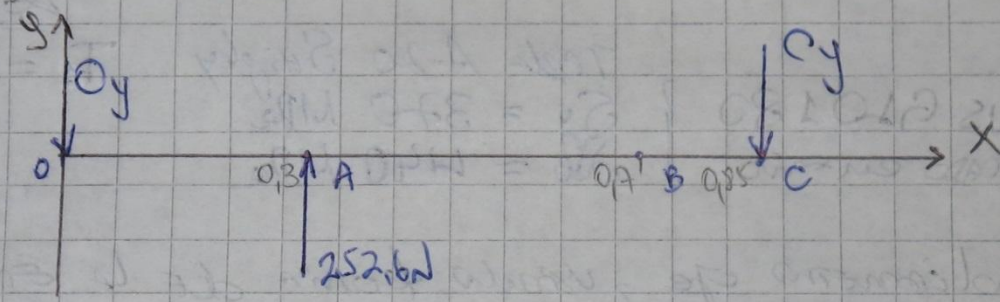 y
Oy
Cy
X
O
0,3
A
0,7
B
0,85
C
252,6N